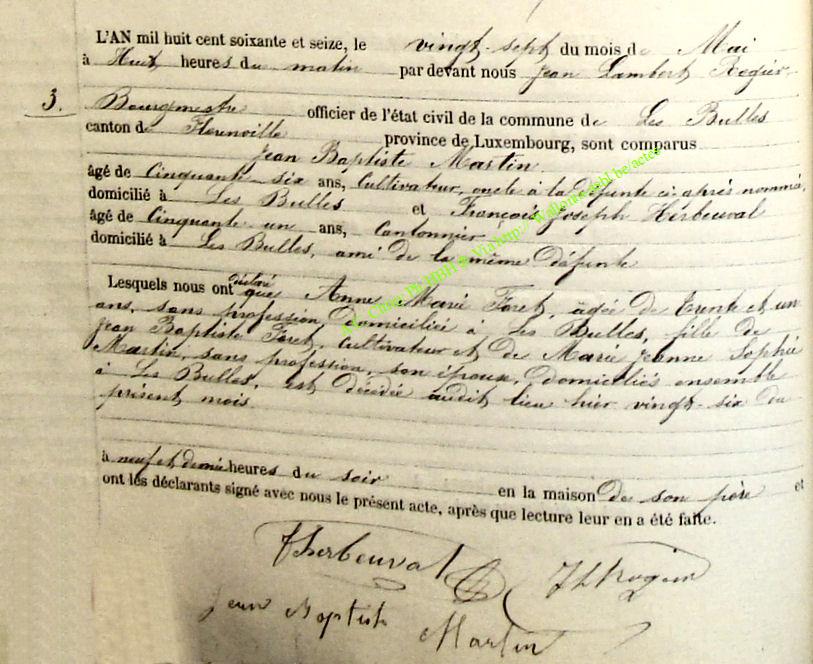 L'AN mil huit cent soixante et seize, le vingt-sept du mois de Mai
à Huit heures du matin par devant nous Jean Lambert Rogier
3.
Bourgmestre officier de l'état civil de la commune de Les Bulles
canton de Florenville province de Luxembourg, sont comparus
Jean Baptiste Martin
âgé de Cinquante-six ans, Cultivateur, oncle à la défunte ci après nommée,
domicilié à Les Bulles et François Joseph Herbeuval
âgé de Cinquante un ans, Cantonnier
domicilié à Les Bulles, ami de la même défunte
Lesquels nous ont déclaré que Anne Marie Foret, âgée de trente et un
ans, sans profession domiciliée à Les Bulles, fille de
Jean Baptiste Foret, Cultivateur et de Marie Jeanne Sophie
Martin, sans profession, son épouse, domiciliés ensemble
à Les Bulles, est décédée audit lieu hier vingt-six du
présent mois
à neuf et demie heures du soir en la maison de son père et
ont les déclarants signé avec nous le présent acte, après que lecture leur en a été faite.
Herbeuval JLRogier
Jean Baptiste
Martin